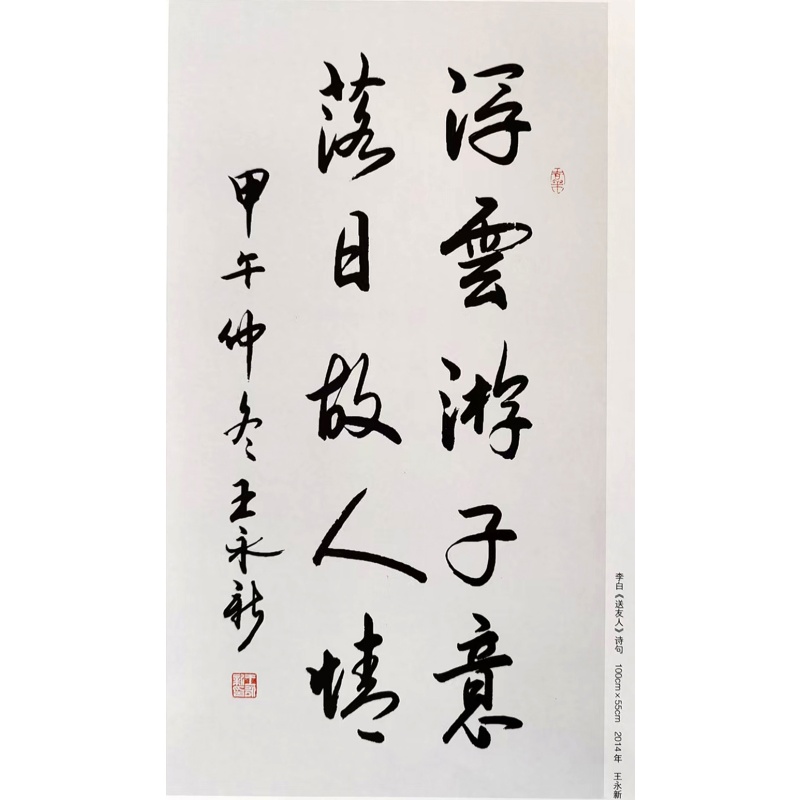 浮雲游子意
落日故人情
甲午仲冬王永新
李白《送友人》诗句 100cm×55cm 2014年 王永新